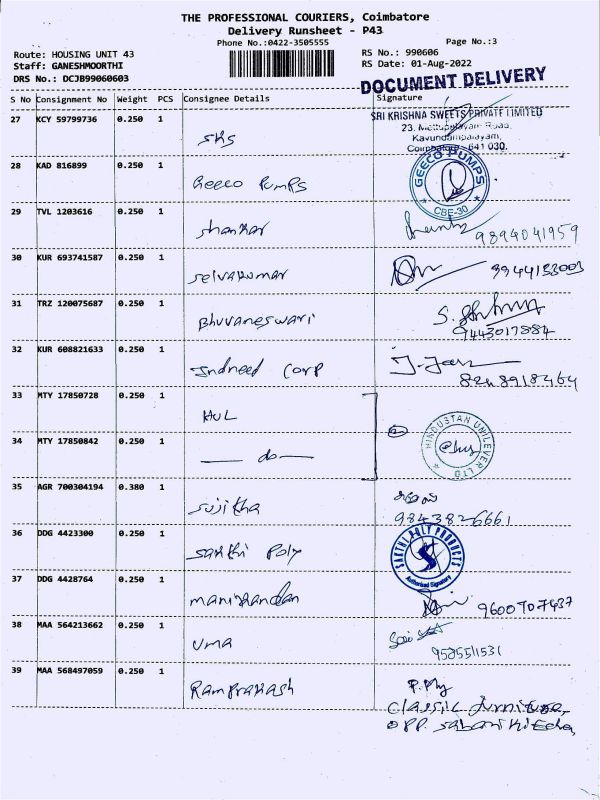 THE PROFESSIONAL COURIERS, Coimbatore
Delivery Runsheet - P43
Phone No.:0422-3505555
Page No.:3
Route: HOUSING UNIT 43
RS No.: 990606
Staff: GANESHMOORTHI
RS Date: 01-Aug-2022
DRS No.: DCJB99060603
DOCUMENT DELIVERY
S No Consignment No Weight PCS Consignee Details Signature
27 KCY 59799736 0.250 1 SKS
SRI KRISHNA SWEETS PRIVATE LIMITED
23, Mettupalayam Road,
Kavundampalayam,
Coimbatore - 641 030.
28 KAD 816899 0.250 1 Geeco Pumps
GEECO PUMPS
CBE-30
29 TVL 1203616 0.250 1 Shankar
9894041959
30 KUR 693741587 0.250 1 Selvakumar
9944133003
31 TRZ 120075687 0.250 1 Bhuvaneswari
9443017884
32 KUR 608821633 0.250 1 Indneed Corp
8248918464
33 MTY 17850728 0.250 1 HUL
34 MTY 17850842 0.250 1 — do —
2
HINDUSTAN UNILEVER LTD
35 AGR 700304194 0.380 1 Sujitha
9843826661
36 DDG 4423300 0.250 1 Sakthi Poly
SAKTHI POLY PRODUCTS
Authorised Signatory
37 DDG 4428764 0.250 1 Manikandan
9600707437
38 MAA 564213662 0.250 1 Uma
9585511531
39 MAA 568497059 0.250 1 Ramprakash
Classic furniture,
opp. Sabari